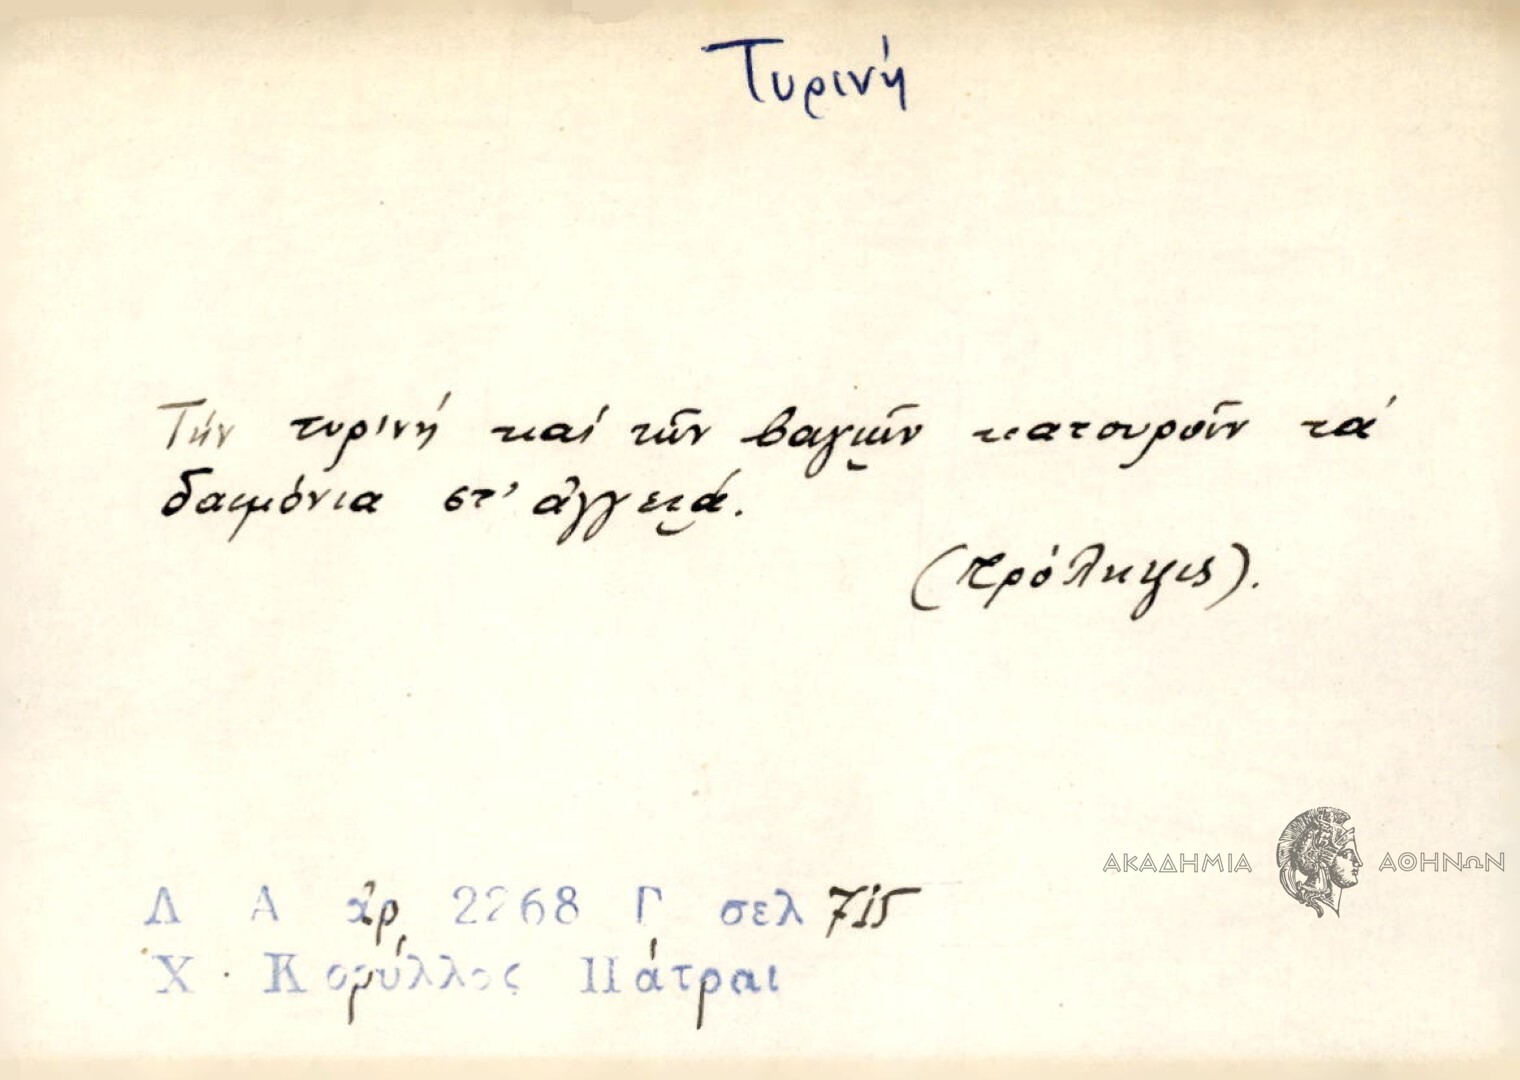 Τυρινή
Τήν τυρινή καί τῶν βαγιῶν κατουροῦν τά
δαιμόνια στ' ἀγγειά.
(πρόληψις).
ΑΚΑΔΗΜΙΑ ΑΘΗΝΩΝ
Λ Α ἀρ. 2268 Γ σελ 715
Χ. Κορύλλος Πάτραι